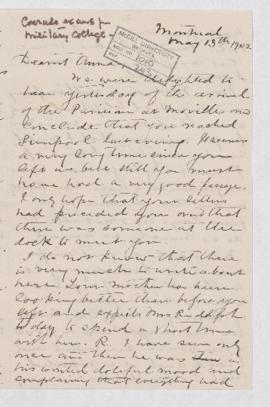 Corrects exams for
Military College
Montreal
May 13th 1902
McGILL UNIVERSITY
ACC. NO.
1010
REF.
Dearest Anna
We were delighted to
hear yesterday of the arrival
of the Parisian at Moville and
conclude that you reached
Liverpool last evening. It seems
a very long time since you
left us, but still you must
have had a very good passage.
I only hope that your letters
had preceded you and that
there was someone at the
dock to meet you.
I do not know that there
is very much to write about
here. Your mother has been
looking better than before you
left and expects Mrs
today to spend a short time
with her. R. I have seen only
once and then he was in
his wonted doleful mood and
complaining that everything had